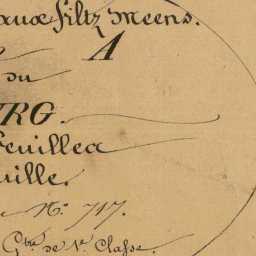 aux filtz Meens.
A
du
RG.
Feuillea
uille.
N.º 717.
Gtre de 1e. Classe.